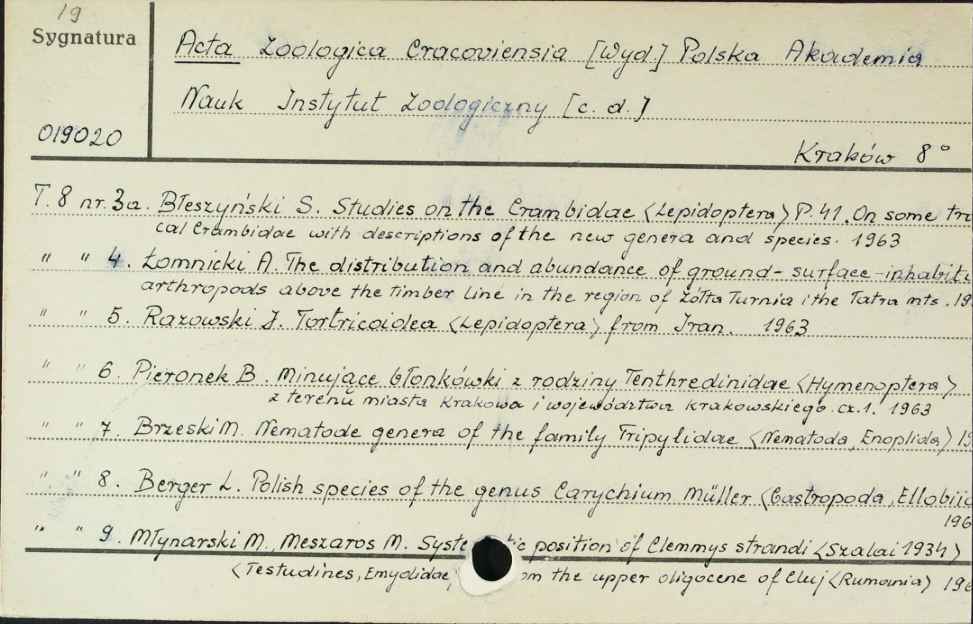 19
Sygnatura
Acta Zoologica Cracoviensia [wyd.] Polska Akademia
Nauk Instytut Zoologiczny [c. d.]
019020
Kraków 8°
T. 8 nr. 3a. Błeszyński S. Studies on the Crambidae <Lepidoptera> P. 41. On some tro
cal Crambidae with descriptions of the new genera and species. 1963
" " 4. Łomnicki A. The distribution and abundance of ground-surface-inhabiti
arthropods above the timber line in the region of Żółta Turnia i the Tatra mts. 19
" " 5. Razowski J. Tortricoidea <Lepidoptera> from Iran. 1963
" " 6. Pieronek B. Minujące błonkówki z rodziny Tenthredinidae <Hymenoptera>
z terenu miasta Krakowa i województwa krakowskiego. cz. 1. 1963
" " 7. Brzeski M. Nematode genera of the family Tripylidae <Nematoda, Enoplida> 19
" " 8. Berger L. Polish species of the genus Carychium Müller <Gastropoda, Ellobiid
196
" " 9. Młynarski M., Meszaros M. Syste ic position of Clemmys strandi <Szalai 1934>
<Testudines, Emydidae om the upper oligocene of Cluj <Rumania> 196